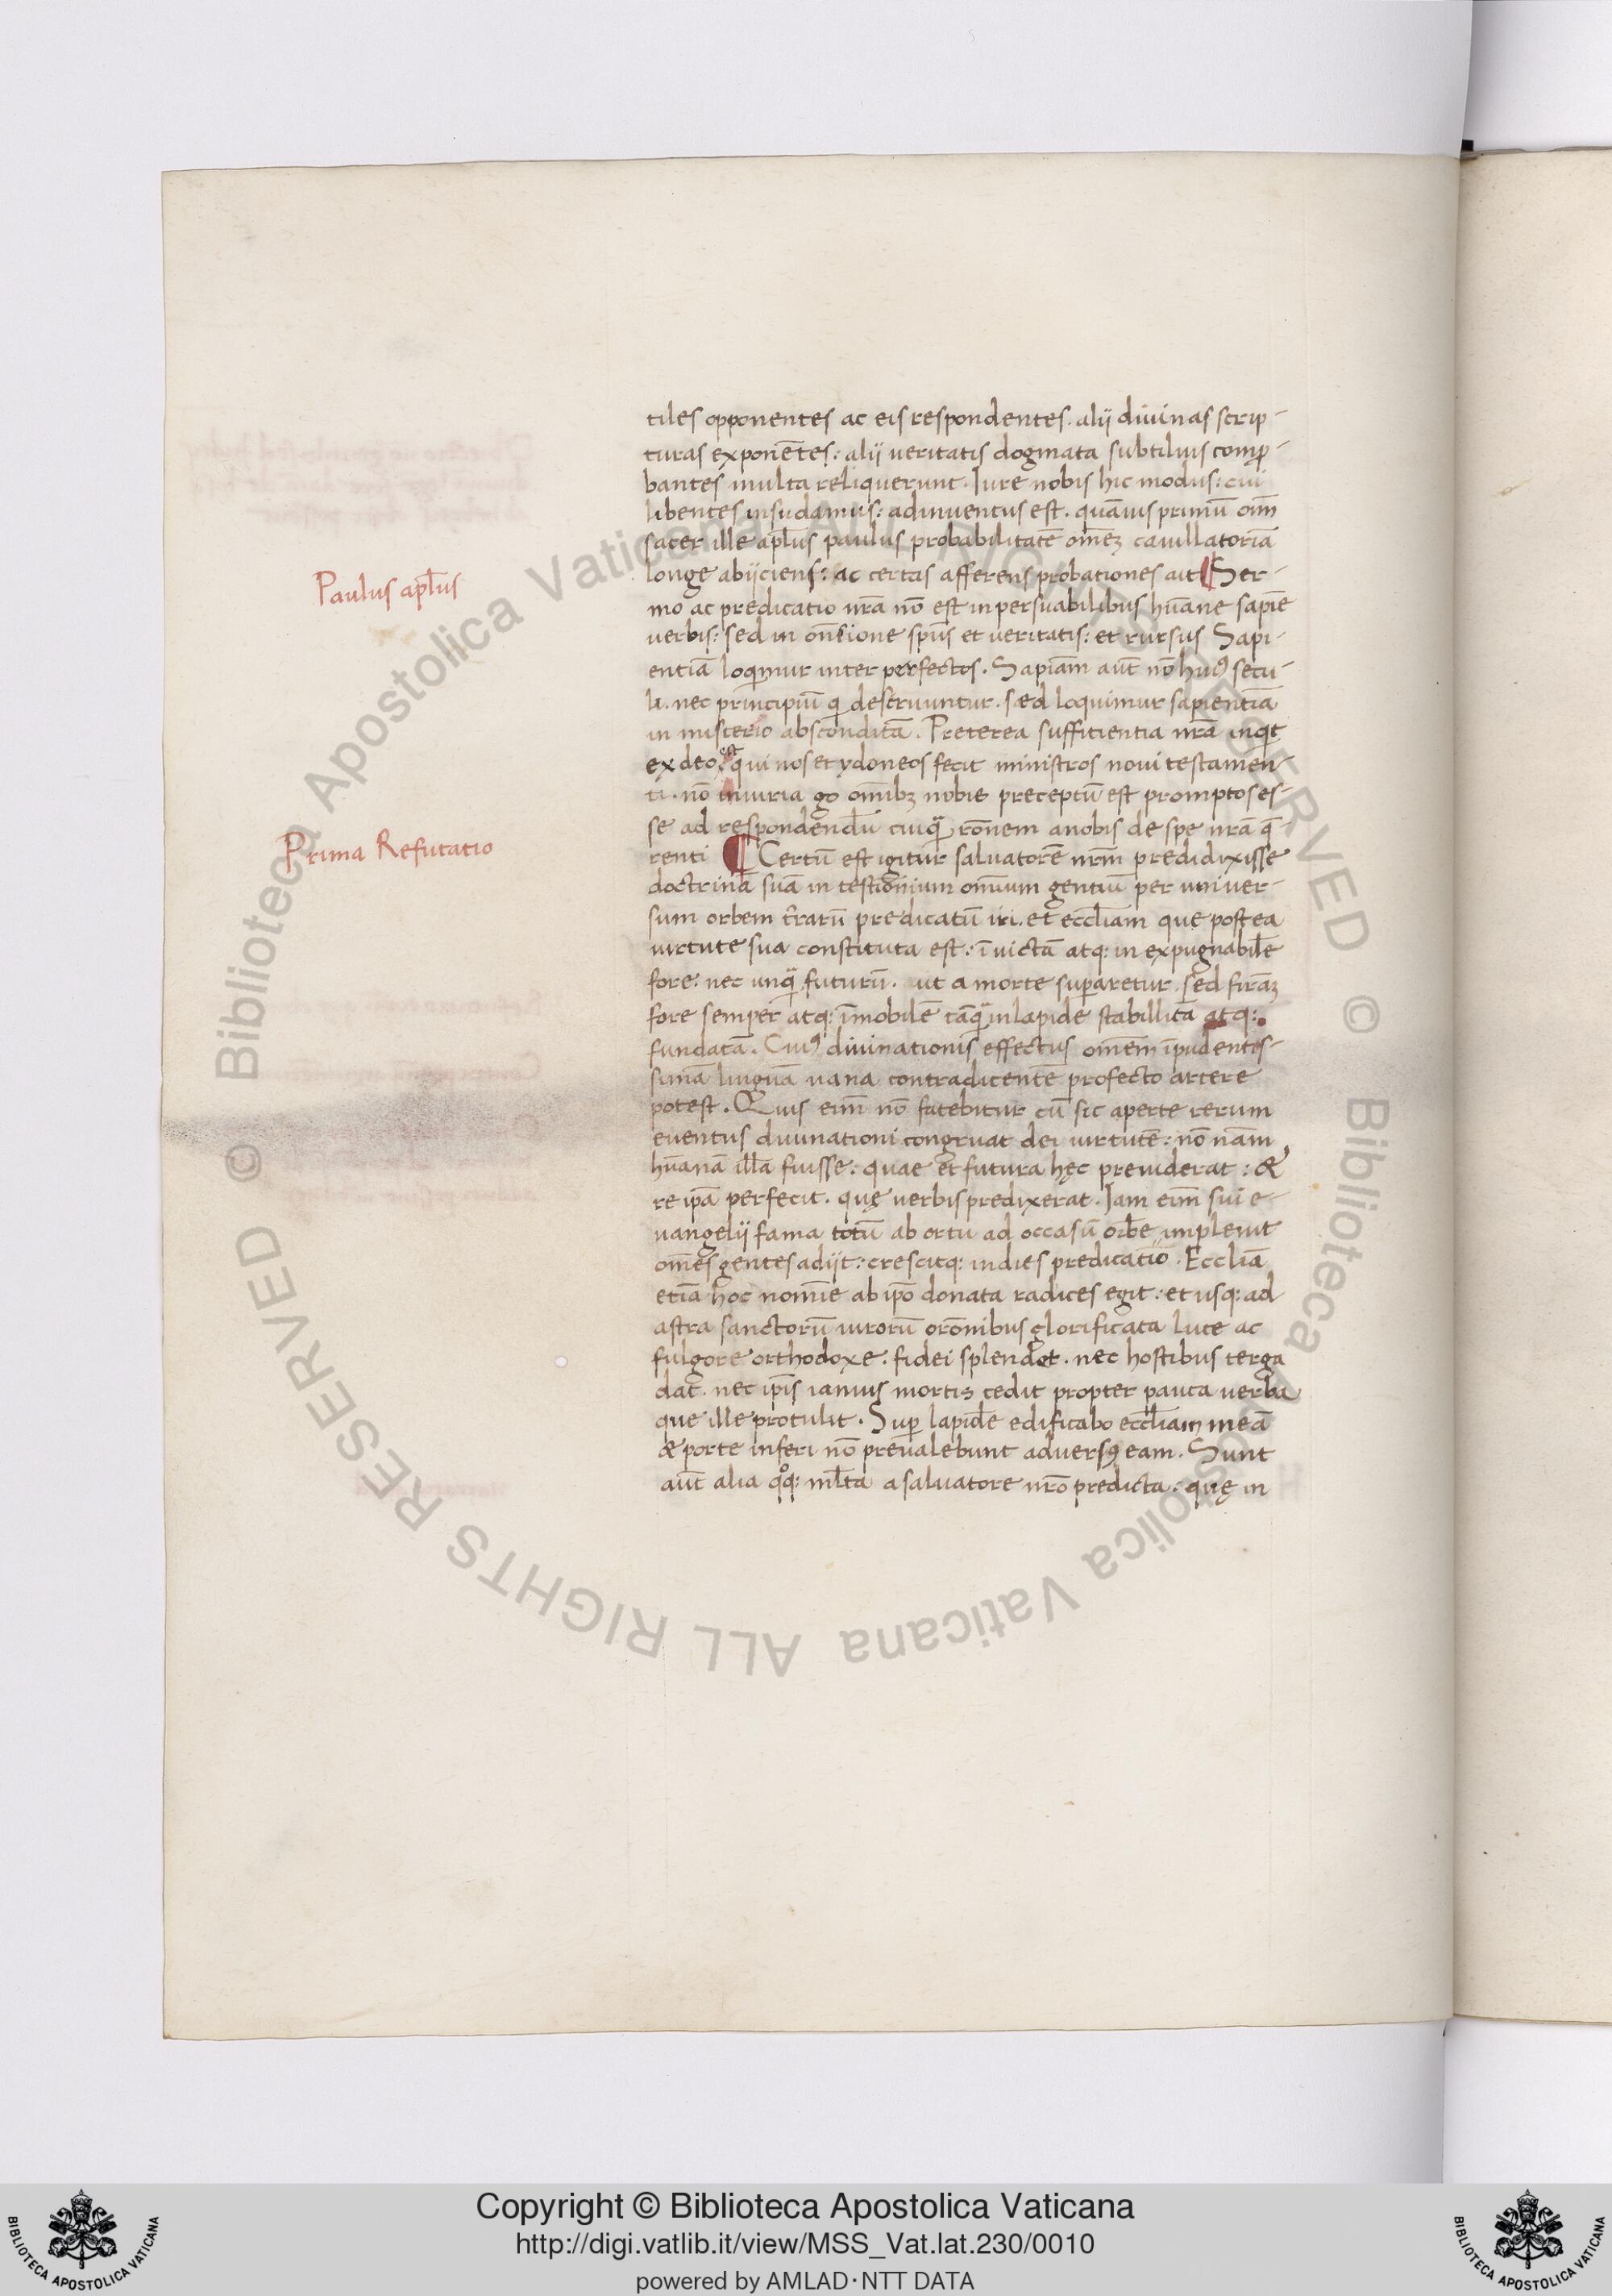 tiles opponentes ac eis respondentes. alij diuinas scrip-
turas exponētes: alij ueritatis dogmata subtilius comp̱ro-
bantes multa reliquerunt. Iure nobis hic modus: cui
libentes insudamus: adinuentus est. quāuis primū oīm
sacer ille apl̄us paulus probabilitatē om̄eꝫ cauillatoriā
Paulus apl̄us
longe abijciens: ac certas afferens probationes ait ¶ Ser-
mo ac predicatio nr̄a nō est in persuabilibus hūane sapīe
uerbis: sed in on̄sione sp̄us et ueritatis: et rursus Sapi-
entiā loq̄imur inter perfectos. Sapiām aūt nō huiꝰ secu-
li. nec principiū q̄ destruuntur. sed loquimur sapientiā
in misterio absconditā. Preterea sufficientia nr̄a inqͥt
ex deo est qui nos et ydoneos fecit ministros noui testamen-
ti. nō iniuria go om̄ibꝫ nobis preceptū est promptos es-
se ad respondendū cuiqꝫ rōnem a nobis de spe nr̄a q̄-
Prima Refutatio
renti ¶ Certū est igitur saluatorē nr̄m predidixisse
doctrinā suā in testionium omnium gentiū per uniuer-
sum orbem t̄rarū predicatū iri. et eccl̄iam que postea
uirtute sua constituta est: īuictā atq: in expugnabilē
fore: nec unq̄ futurū. ut a morte sup̱aretur. sed firmāꝫ
fore semper atq: īmobilē tāq̄ in lapide stabillitā atq:
fundatā. Cuiꝰ diuinationis effectus omēm īpudentis-
simā linguā uana contradicentē profecto arcere
potest. Quis eīm nō fatebitur cū sic aperte rerum
euentus diuinationi congruat dei uirtutē: nō nām
hūanā illā fuisse: quae et futura hęc preuiderat: &
re ip̄a perfecit. quę uerbis predixerat. Iam eīm sui e-
uangelij fama totū ab ortu ad occasū orbē impleuit
om̄es gentes adijt: crescitq: indies predicatio. Ecclīā
etiā hoc nomīe ab ip̄o donata radices egit: et usq: ad
astra sanctorū uirorū orōnibus glorificata luce ac
fulgore orthodoxe. fidei splendet. nec hostibus terga
dat. nec ip̄is ianuis mortis cedit propter pauca uerba
que ille protulit. Sup̱ lapidē edificabo eccl̄iam meā
& porte inferi nō preualebunt aduersꝰ eam. Sunt
aūt alia qͦq: ml̄ta a saluatore nr̄o predicta: quę in
© Biblioteca Apostolica Vaticana ALL RIGHTS RESERVED © Biblioteca Apostolica Vaticana ALL RIGHTS RESERVED
Copyright © Biblioteca Apostolica Vaticana
http://digi.vatlib.it/view/MSS_Vat.lat.230/0010
powered by AMLAD·NTT DATA
BIBLIOTECA APOSTOLICA VATICANA
BIBLIOTECA APOSTOLICA VATICANA